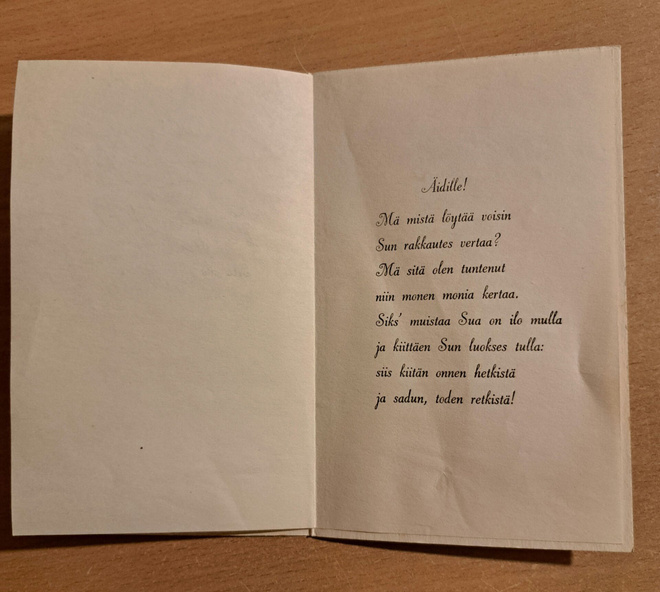 Äidille!
Mä mistä löytää voisin
Sun rakkautes vertaa?
Mä sitä olen tuntenut
niin monen monia kertaa.
Siks' muistaa Sua on ilo mulla
ja kiittäen Sun luokses tulla:
siis kiitän onnen hetkistä
ja sadun, toden retkistä!